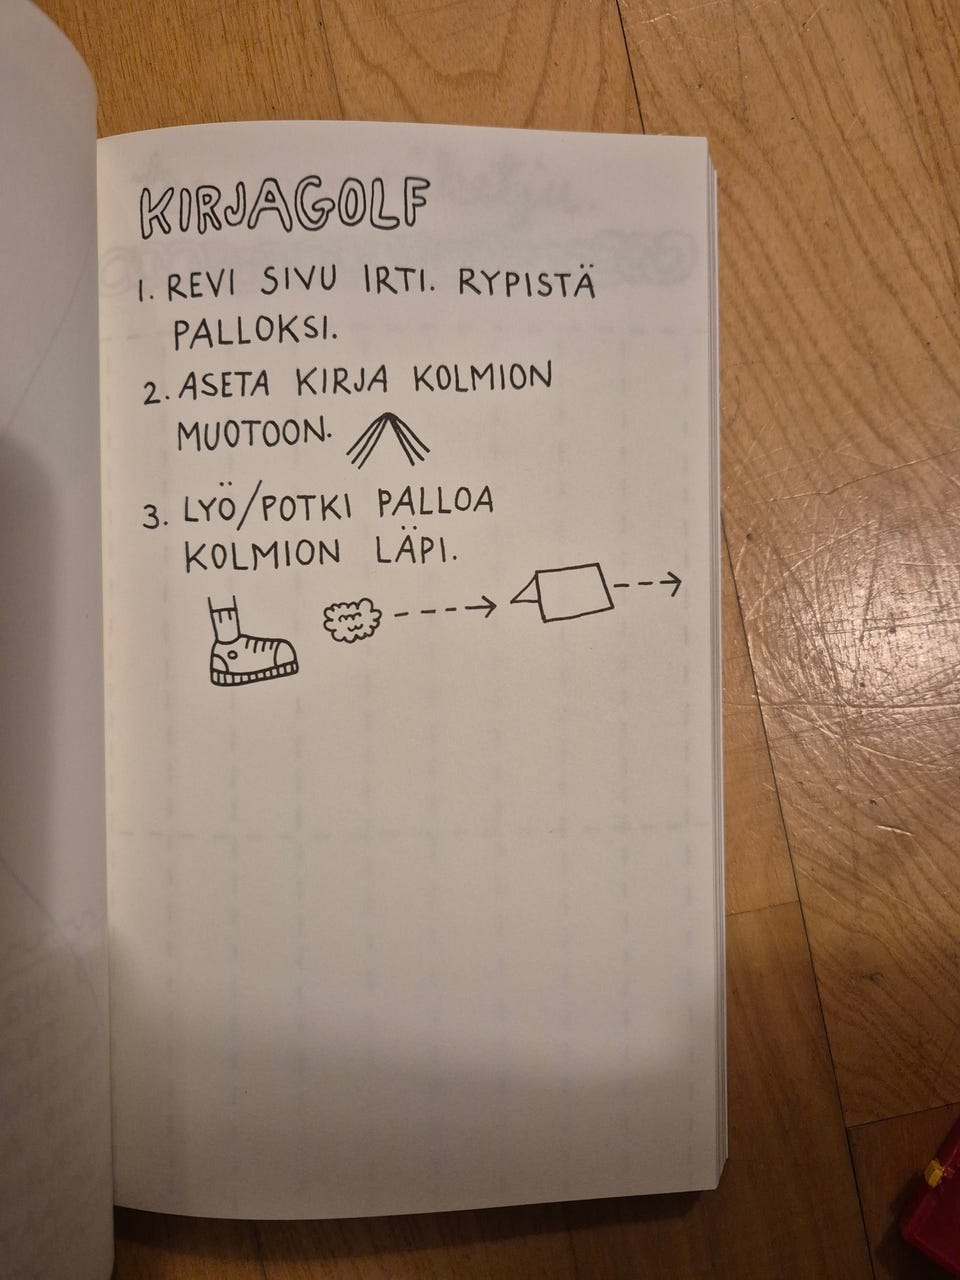 KIRJAGOLF
1. REVI SIVU IRTI. RYPISTÄ
PALLOKSI.
2. ASETA KIRJA KOLMION
MUOTOON.
3. LYÖ/POTKI PALLOA
KOLMION LÄPI.